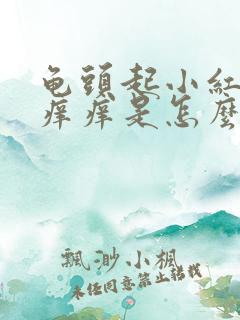 龟頭起小紅
痒痒是怎麽
飄渺小楓
未经同意禁止转载